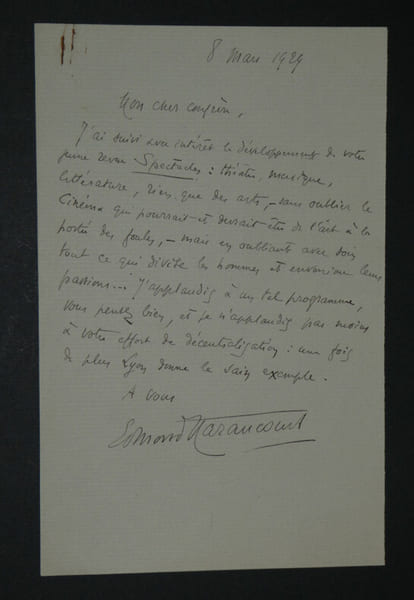 8 Mars 1929
Mon cher confrère,
J'ai suivi avec intérêt le développement de votre
jeune revue Spectacles : théâtre, musique,
littérature, rien que des arts, – sans oublier le
Cinéma qui pourrait et devrait être de l'art à la
portée des foules, – mais en oubliant avec soin
tout ce qui divise les hommes et envenime leurs
passions... J'applaudis à un tel programme,
vous pensez bien, et je n'applaudis pas moins
à votre effort de décentralisation : une fois
de plus Lyon donne le sain exemple.
A vous
Edmond Haraucourt